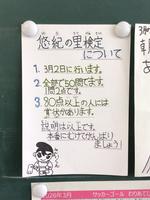 悠紀の里検定
について
1. 3月2日に行います。
2. 全部で50問です。
1問2点です。
3. 80点以上の人には
賞状があります。
説明は以上です。
本番にむけてがんばり
ましょう!
3月の
2026年3月
サッカーゴール